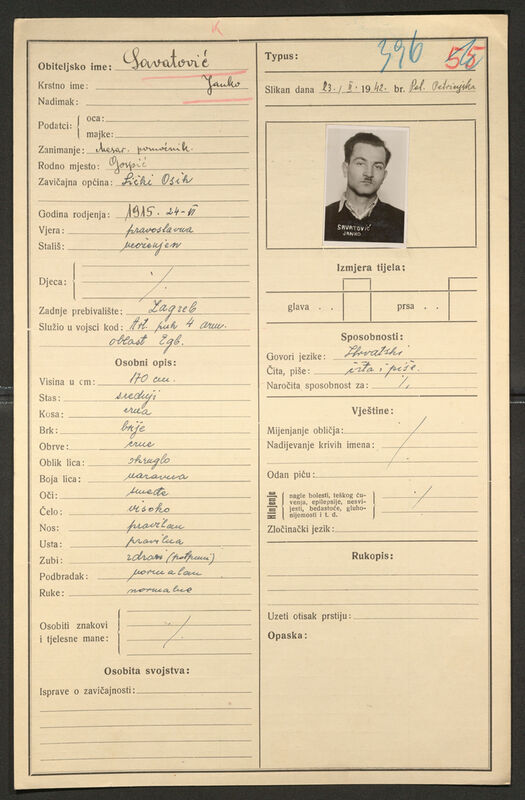 K
Obiteljsko ime: Savatović
Krstno ime: Janko
Nadimak:
Podatci: oca:
majke:
Zanimanje: mesar. pomoćnik
Rodno mjesto: Gospić
Zavičajna općina: Lički Osik
Godina rodjenja: 1915. 24-VI
Vjera: pravoslavna
Stališ: neoženjen
Djeca: /.
Zadnje prebivalište: Zagreb
Služio u vojsci kod: Art. puk 4 arm.
oblast Zgb.
Osobni opis:
Visina u cm: 170 cm.
Stas: srednji
Kosa: crna
Brk: brije
Obrve: crne
Oblik lica: okruglo
Boja lica: naravna
Oči: smeđe
Čelo: visoko
Nos: pravilan
Usta: pravilna
Zubi: zdravi (potpuni)
Podbradak: normalan
Ruke: normalne
Osobiti znakovi
i tjelesne mane: /.
Osobita svojstva:
Isprave o zavičajnosti:
Typus: 396 55
Slikan dana 23./II 1942. br. Pol. Petrinjska
SAVATOVIĆ
JANKO
Izmjera tijela:
glava . . prsa . .
Sposobnosti:
Govori jezike: Hrvatski
Čita, piše: čita i piše.
Naročita sposobnost za: /.
Vještine:
Mijenjanje obličja:
Nadijevanje krivih imena:
Odan piću:
Hinjenje
nagle bolesti, teškog ču-
venja, epilepsije, nesvi-
jesti, bedastoće, gluho-
nijemosti i t. d. /.
Zločinački jezik:
Rukopis:
Uzeti otisak prstiju:
Opaska: